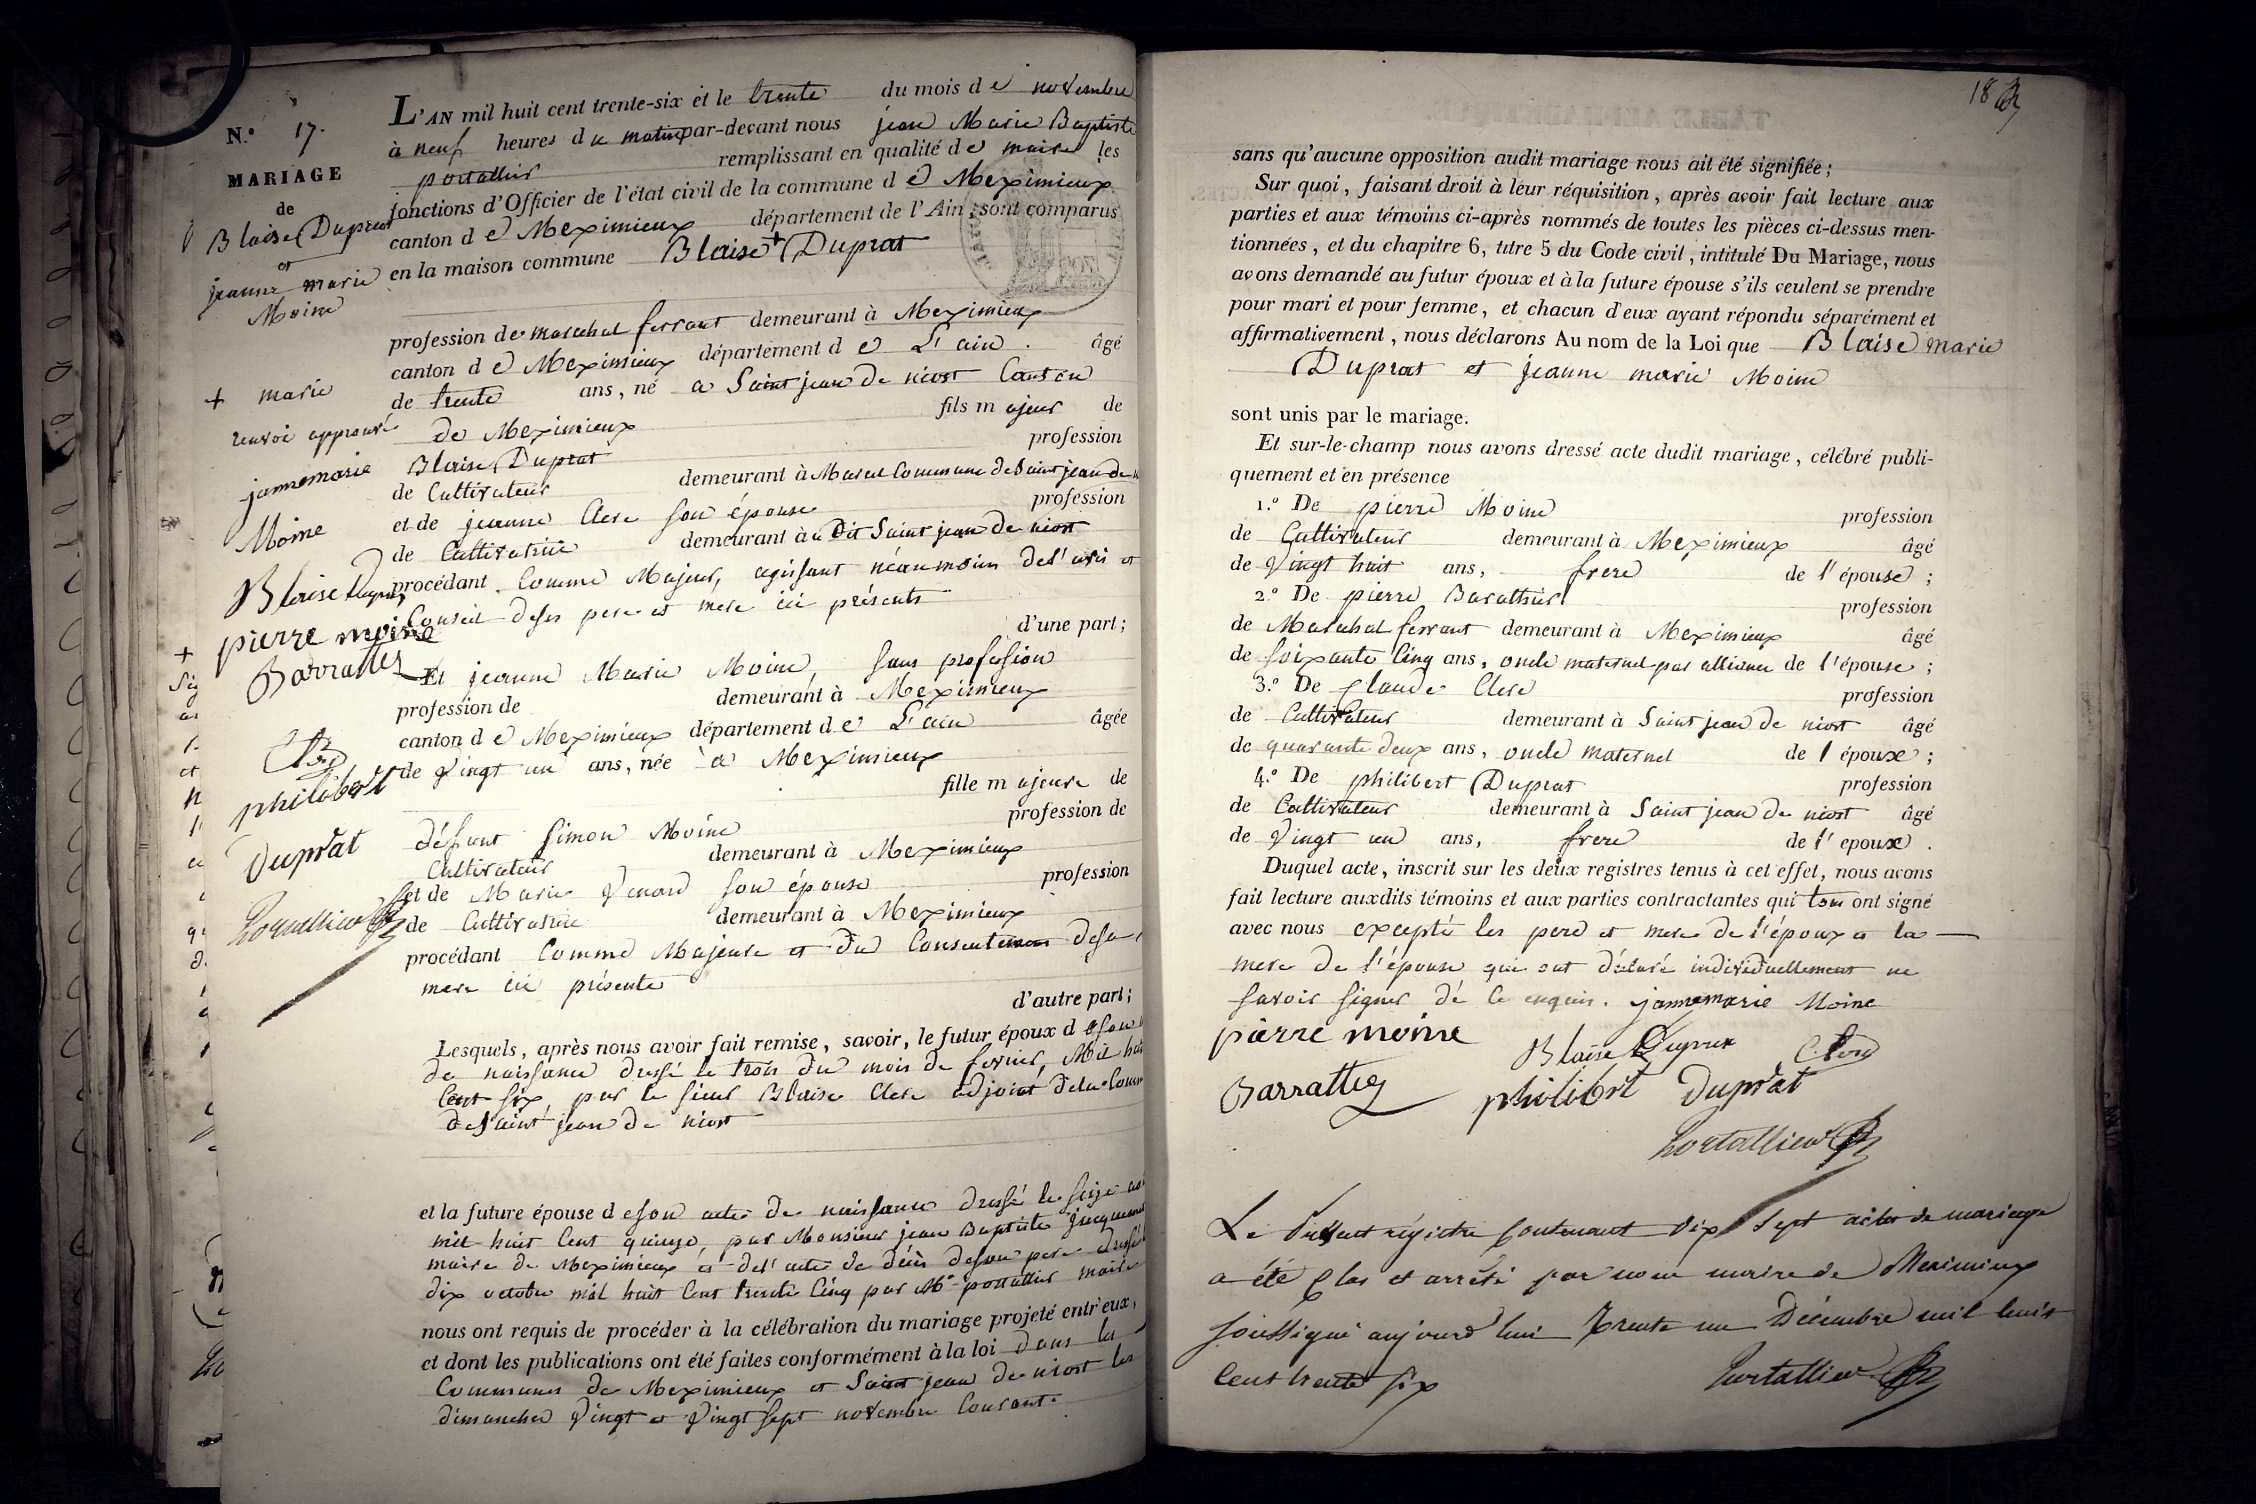 N.° 17.
MARIAGE
de
Blaise Duprat
et
jeanne marie
Moine
+ marie
renvoi approuvé
jannemarie
Moine
Blaise Duprat
pierre moine
Barrattier
Clerc
philibert
Duprat
Portallier
L'AN mil huit cent trente-six et le trente du mois de novembre
à neuf heures du matin par-devant nous jean Marie Baptiste
portallier remplissant en qualité de maire les
fonctions d'Officier de l'état civil de la commune de Meximieux
canton de Meximieux département de l'Ain, sont comparus
en la maison commune Blaise + Duprat
profession de marechal ferrant demeurant à Meximieux
canton de Meximieux département de L'ain. âgé
de trente ans, né a Saint jean de niost Canton
de Meximieux fils majeur de
Blaise Duprat profession
de Cultivateur demeurant à Commune de Saint jean de
et de jeanne Clerc son épouse profession
de Cultivatrice demeurant à u Dit Saint jean de niost
procédant Comme Majeur, agissant néanmoins de l'avis et
Conseil de ses pere et mere ici présents
d'une part;
Et jeanne Marie Moine sans profession
profession de demeurant à Meximieux
canton de Meximieux département de L'ain âgée
de vingt un ans, née à a Meximieux
fille majeure de
défunt Simon Moine profession de
Cultivateur demeurant à Meximieux
et de Marie Venard son épouse profession
de Cultivatrice demeurant à Meximieux
procédant Comme Majeure et du Consentement de sa
mere ici présente
d'autre part;
Lesquels, après nous avoir fait remise, savoir, le futur époux de son
de naissance dressé le trois du mois de fevrier, Mil huit
Cent six, par le sieur Blaise Clerc adjoint de la Comm
de Saint jean de niost
et la future épouse de son acte de naissance dressé le seize
mil huit Cent quinze, par Monsieur jean Baptiste
maire de Meximieux et de l'acte de décès de son pere dressé
dix octobre mil huit Cent trente Cinq par Mr portallier maire
nous ont requis de procéder à la célébration du mariage projeté entr'eux,
et dont les publications ont été faites conformément à la loi dans les
Communes de Meximieux et Saint jean de niost les
dimanches vingt et vingt sept novembre Courant.
18
sans qu'aucune opposition audit mariage nous ait été signifiée;
Sur quoi, faisant droit à leur réquisition, après avoir fait lecture aux
parties et aux témoins ci-après nommés de toutes les pièces ci-dessus men-
tionnées, et du chapitre 6, titre 5 du Code civil, intitulé Du Mariage, nous
avons demandé au futur époux et à la future épouse s'ils veulent se prendre
pour mari et pour femme, et chacun d'eux ayant répondu séparément et
affirmativement, nous déclarons Au nom de la Loi que Blaise marie
Duprat et jeanne marie Moine
sont unis par le mariage.
Et sur-le-champ nous avons dressé acte dudit mariage, célébré publi-
quement et en présence
1.° De pierre Moine profession
de Cultivateur demeurant à Meximieux âgé
de vingt huit ans, frere de l'épouse;
2.° De pierre Barattier profession
de Marechal ferrant demeurant à Meximieux âgé
de soixante Cinq ans, oncle maternel par alliance de l'épouse;
3.° De Claude Clerc profession
de Cultivateur demeurant à Saint jean de niost âgé
de quarante deux ans, oncle maternel de l époux;
4.° De philibert Duprat profession
de Cultivateur demeurant à Saint jean de niost âgé
de vingt un ans, frere de l'epoux.
Duquel acte, inscrit sur les deux registres tenus à cet effet, nous avons
fait lecture auxdits témoins et aux parties contractantes qui tous ont signé
avec nous excepté les pere et mere de l'époux et la
mere de l'épouse qui ont déclaré individuellement ne
savoir signer de ce enquis. jannemarie Moine
pierre moine Blaise Duprat Clerc
Barrattier philibert Duprat
Portallier
Le Présent régistre Contenant dix sept actes de mariage
a été Clos et arrété par nous maire de Meximieux
soussigné aujourd'hui Trente un Décembre mil huit
Cent trente six Portallier